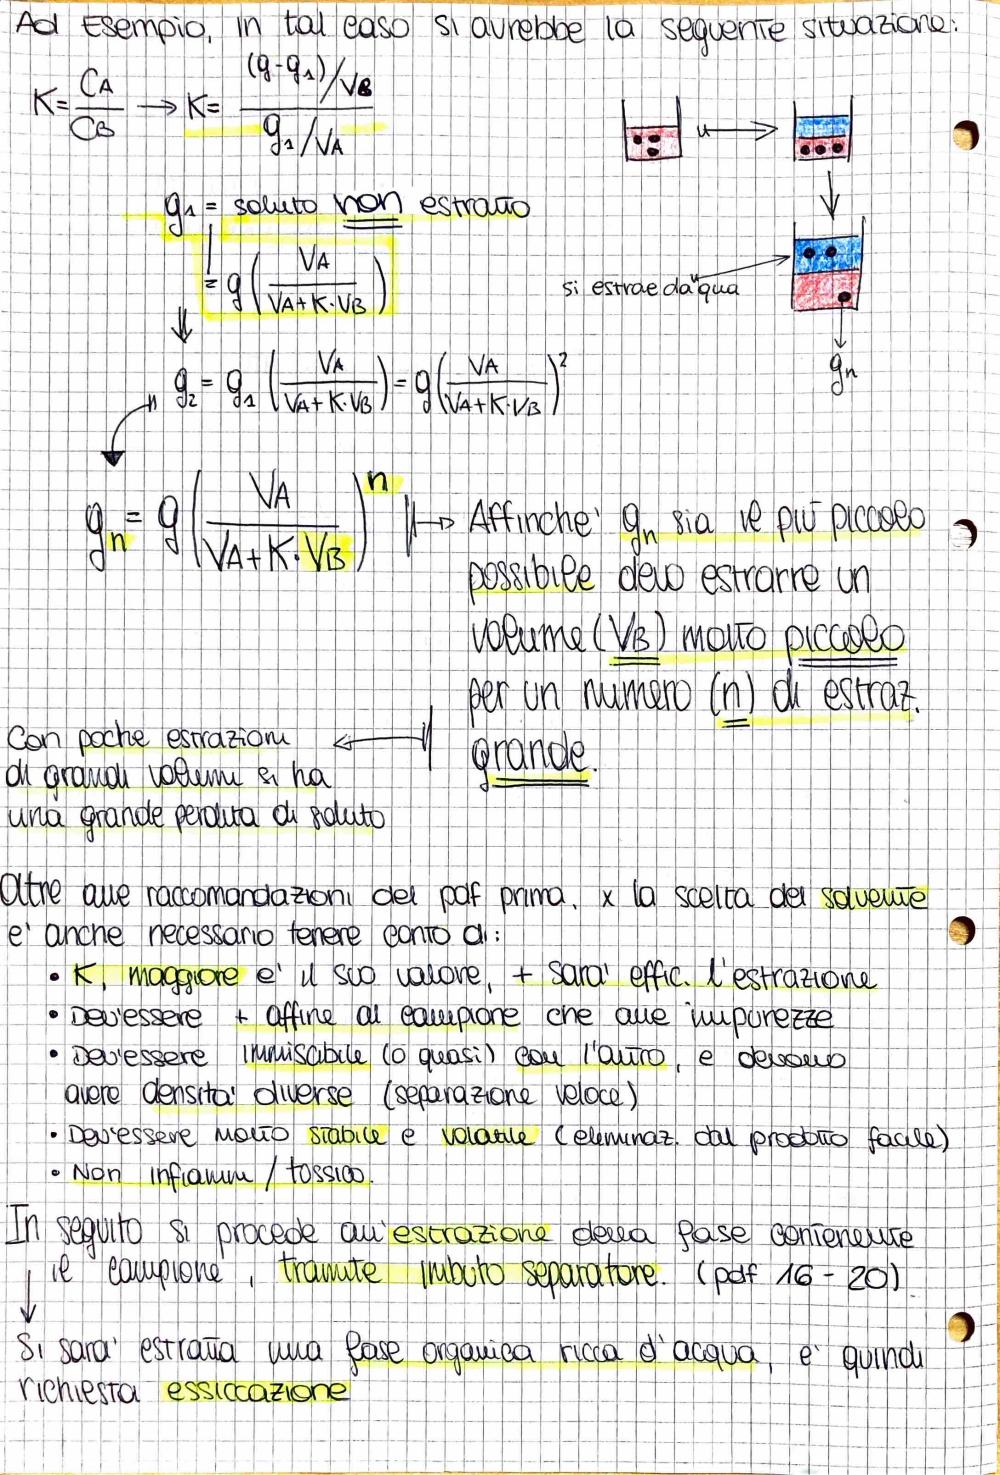 Ad Esempio, in tal caso si avrebbe la seguente situazione:
K = CA/CB → K = (g-g1)/VB / g1/VA
g1 = soluto non estratto
= g (VA / VA + K·VB)
si estrae da qua
g2 = g1 (VA / VA + K·VB) = g (VA / VA + K·VB)²
gn
gn = g (VA / VA + K·VB)ⁿ
Affinche' gn sia il più piccolo
possibile devo estrarre un
volume (VB) molto piccolo
per un numero (n) di estraz.
grande.
Con poche estrazioni
di grandi volumi si ha
una grande perdita di soluto
Oltre alle raccomandazioni del pdf prima, x la scelta del solvente
e' anche necessario tenere conto di:
• K, maggiore e' il suo valore, + sara' effic. l'estrazione
• Dev'essere + affine al campione che alle impurezze
• Dev'essere immiscibile (o quasi) con l'altro, e devono
avere densita' diverse (separazione veloce)
• Dev'essere molto stabile e volatile (eliminaz. dal prodotto facile)
• Non infiamm / tossico.
In seguito si procede all'estrazione della fase contenente
il campione, tramite imbuto separatore. (pdf 16-20)
Si sara' estratta una fase organica ricca d'acqua, e' quindi
richiesta essiccazione